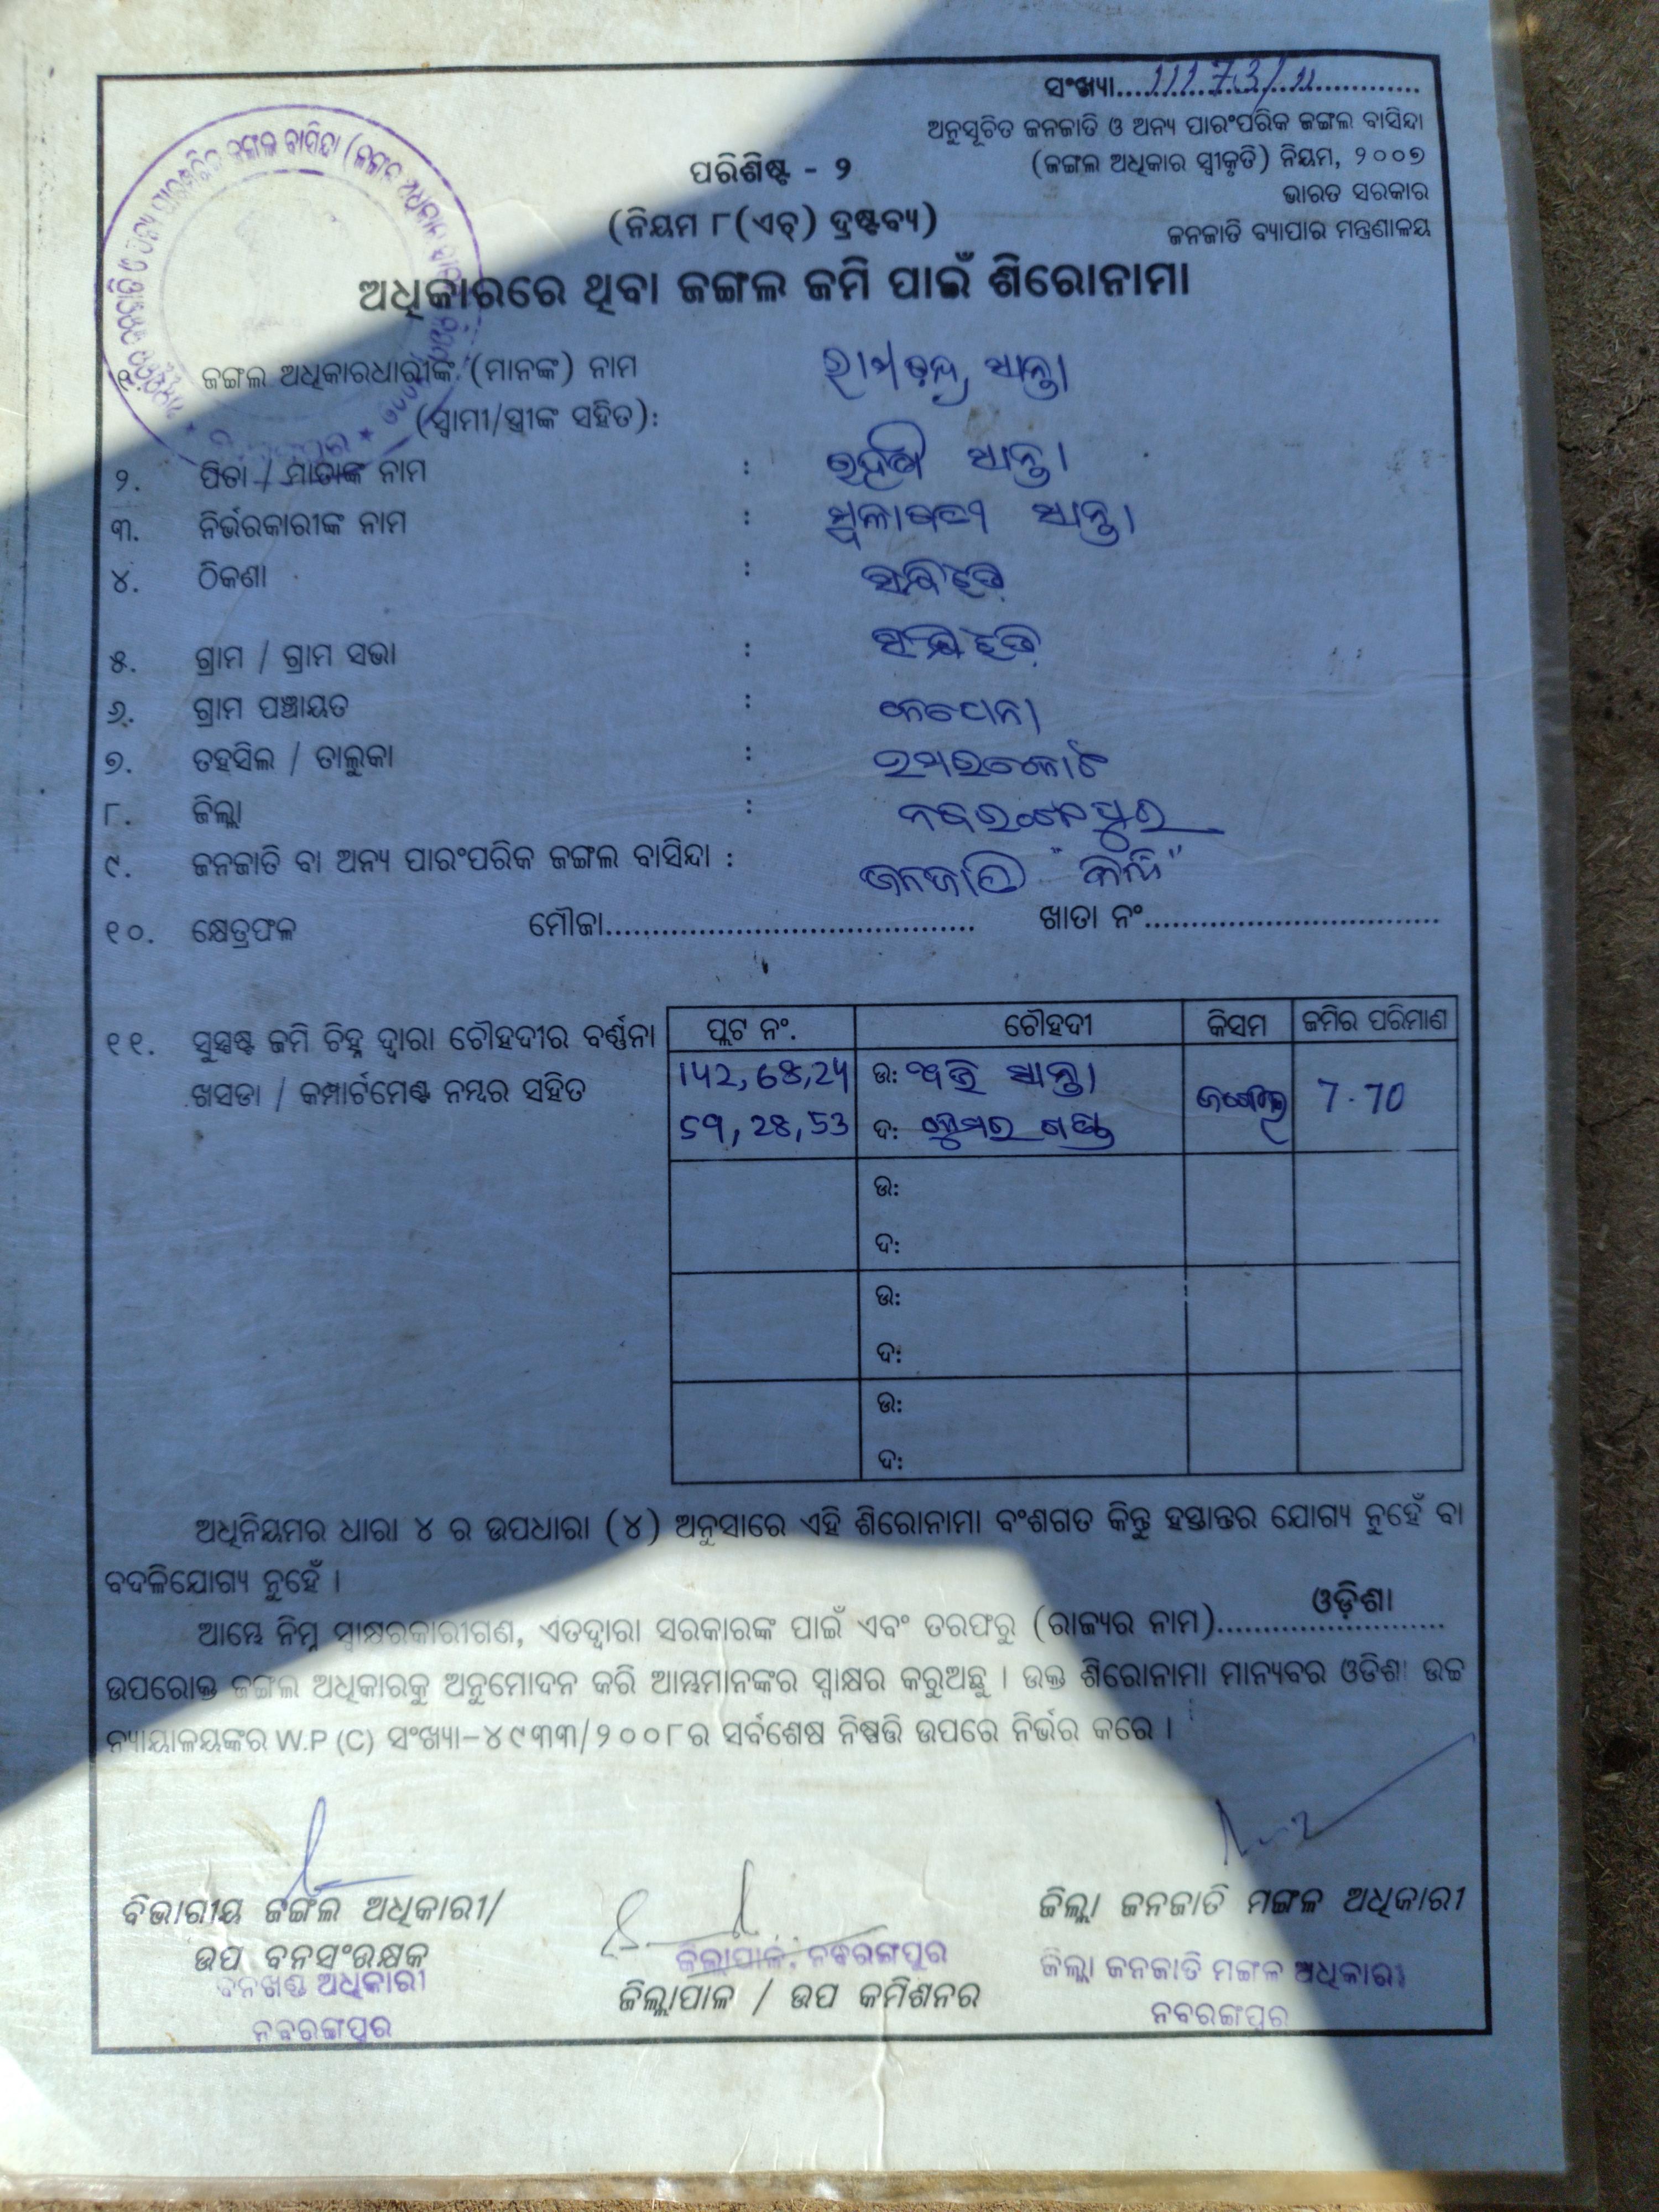 ସଂଖ୍ୟା....11173/11....
ଅନୁସୂଚିତ ଜନଜାତି ଓ ଅନ୍ୟ ପାରଂପରିକ ଜଙ୍ଗଲ ବାସିନ୍ଦା
(ଜଙ୍ଗଲ ଅଧିକାର ସ୍ୱୀକୃତି) ନିୟମ, ୨୦୦୭
ଭାରତ ସରକାର
ଜନଜାତି ବ୍ୟାପାର ମନ୍ତ୍ରଣାଳୟ
ପରିଶିଷ୍ଟ - ୨
(ନିୟମ ୮(ଏଚ୍) ଦ୍ରଷ୍ଟବ୍ୟ)
ଅଧିକାରରେ ଥିବା ଜଙ୍ଗଲ ଜମି ପାଇଁ ଶିରୋନାମା
୧. ଜଙ୍ଗଲ ଅଧିକାରଧାରୀଙ୍କ (ମାନଙ୍କ) ନାମ ରାମଚନ୍ଦ୍ର ସାନ୍ତା
(ସ୍ୱାମୀ/ସ୍ତ୍ରୀଙ୍କ ସହିତ):
୨. ପିତା / ମାତାଙ୍କ ନାମ : ସାନ୍ତା
୩. ନିର୍ଭରକାରୀଙ୍କ ନାମ : ସାନ୍ତା
୪. ଠିକଣା :
୫. ଗ୍ରାମ / ଗ୍ରାମ ସଭା :
୬. ଗ୍ରାମ ପଞ୍ଚାୟତ :
୭. ତହସିଲ / ତାଲୁକା : ଉମରକୋଟ
୮. ଜିଲ୍ଲା : ନବରଂଗପୁର
୯. ଜନଜାତି ବା ଅନ୍ୟ ପାରଂପରିକ ଜଙ୍ଗଲ ବାସିନ୍ଦା : ଜନଜାତି
୧୦. କ୍ଷେତ୍ରଫଳ ମୌଜା.................... ଖାତା ନଂ....................
୧୧. ସୁସ୍ପଷ୍ଟ ଜମି ଚିହ୍ନ ଦ୍ୱାରା ଚୌହଦୀର ବର୍ଣ୍ଣନା
ଖସଡା / କମ୍ପାର୍ଟମେଣ୍ଟ ନମ୍ବର ସହିତ
ପ୍ଲଟ ନଂ. ଚୌହଦୀ କିସମ ଜମିର ପରିମାଣ
ଉ: ସାନ୍ତା ଜଙ୍ଗଲ 7.70
59, 28, 53 ଦ:
ଉ:
ଦ:
ଉ:
ଦ:
ଉ:
ଦ:
ଅଧିନିୟମର ଧାରା ୪ ର ଉପଧାରା (୪) ଅନୁସାରେ ଏହି ଶିରୋନାମା ବଂଶଗତ କିନ୍ତୁ ହସ୍ତାନ୍ତର ଯୋଗ୍ୟ ନୁହେଁ ବା
ବଦଳିଯୋଗ୍ୟ ନୁହେଁ ।
ଆମ୍ଭେ ନିମ୍ନ ସ୍ୱାକ୍ଷରକାରୀଗଣ, ଏତଦ୍ୱାରା ସରକାରଙ୍କ ପାଇଁ ଏବଂ ତରଫରୁ (ରାଜ୍ୟର ନାମ)....ଓଡ଼ିଶା....
ଉପରୋକ୍ତ ଜଙ୍ଗଲ ଅଧିକାରକୁ ଅନୁମୋଦନ କରି ଆମ୍ଭମାନଙ୍କର ସ୍ୱାକ୍ଷର କରୁଅଛୁ । ଉକ୍ତ ଶିରୋନାମା ମାନ୍ୟବର ଓଡିଶା ଉଚ୍ଚ
ନ୍ୟାୟାଳୟଙ୍କର W.P (C) ସଂଖ୍ୟା-୪୯୩୩/୨୦୦୮ର ସର୍ବଶେଷ ନିଷ୍ପତ୍ତି ଉପରେ ନିର୍ଭର କରେ ।
ବିଭାଗୀୟ ଜଙ୍ଗଲ ଅଧିକାରୀ/
ଉପ ବନସଂରକ୍ଷକ
ବନଖଣ୍ଡ ଅଧିକାରୀ
ନବରଙ୍ଗପୁର
ଜିଲ୍ଲାପାଳ, ନବରଙ୍ଗପୁର
ଜିଲ୍ଲାପାଳ / ଉପ କମିଶନର
ଜିଲ୍ଲା ଜନଜାତି ମଙ୍ଗଳ ଅଧିକାରୀ
ଜିଲ୍ଲା ଜନଜାତି ମଙ୍ଗଳ ଅଧିକାରୀ
ନବରଙ୍ଗପୁର